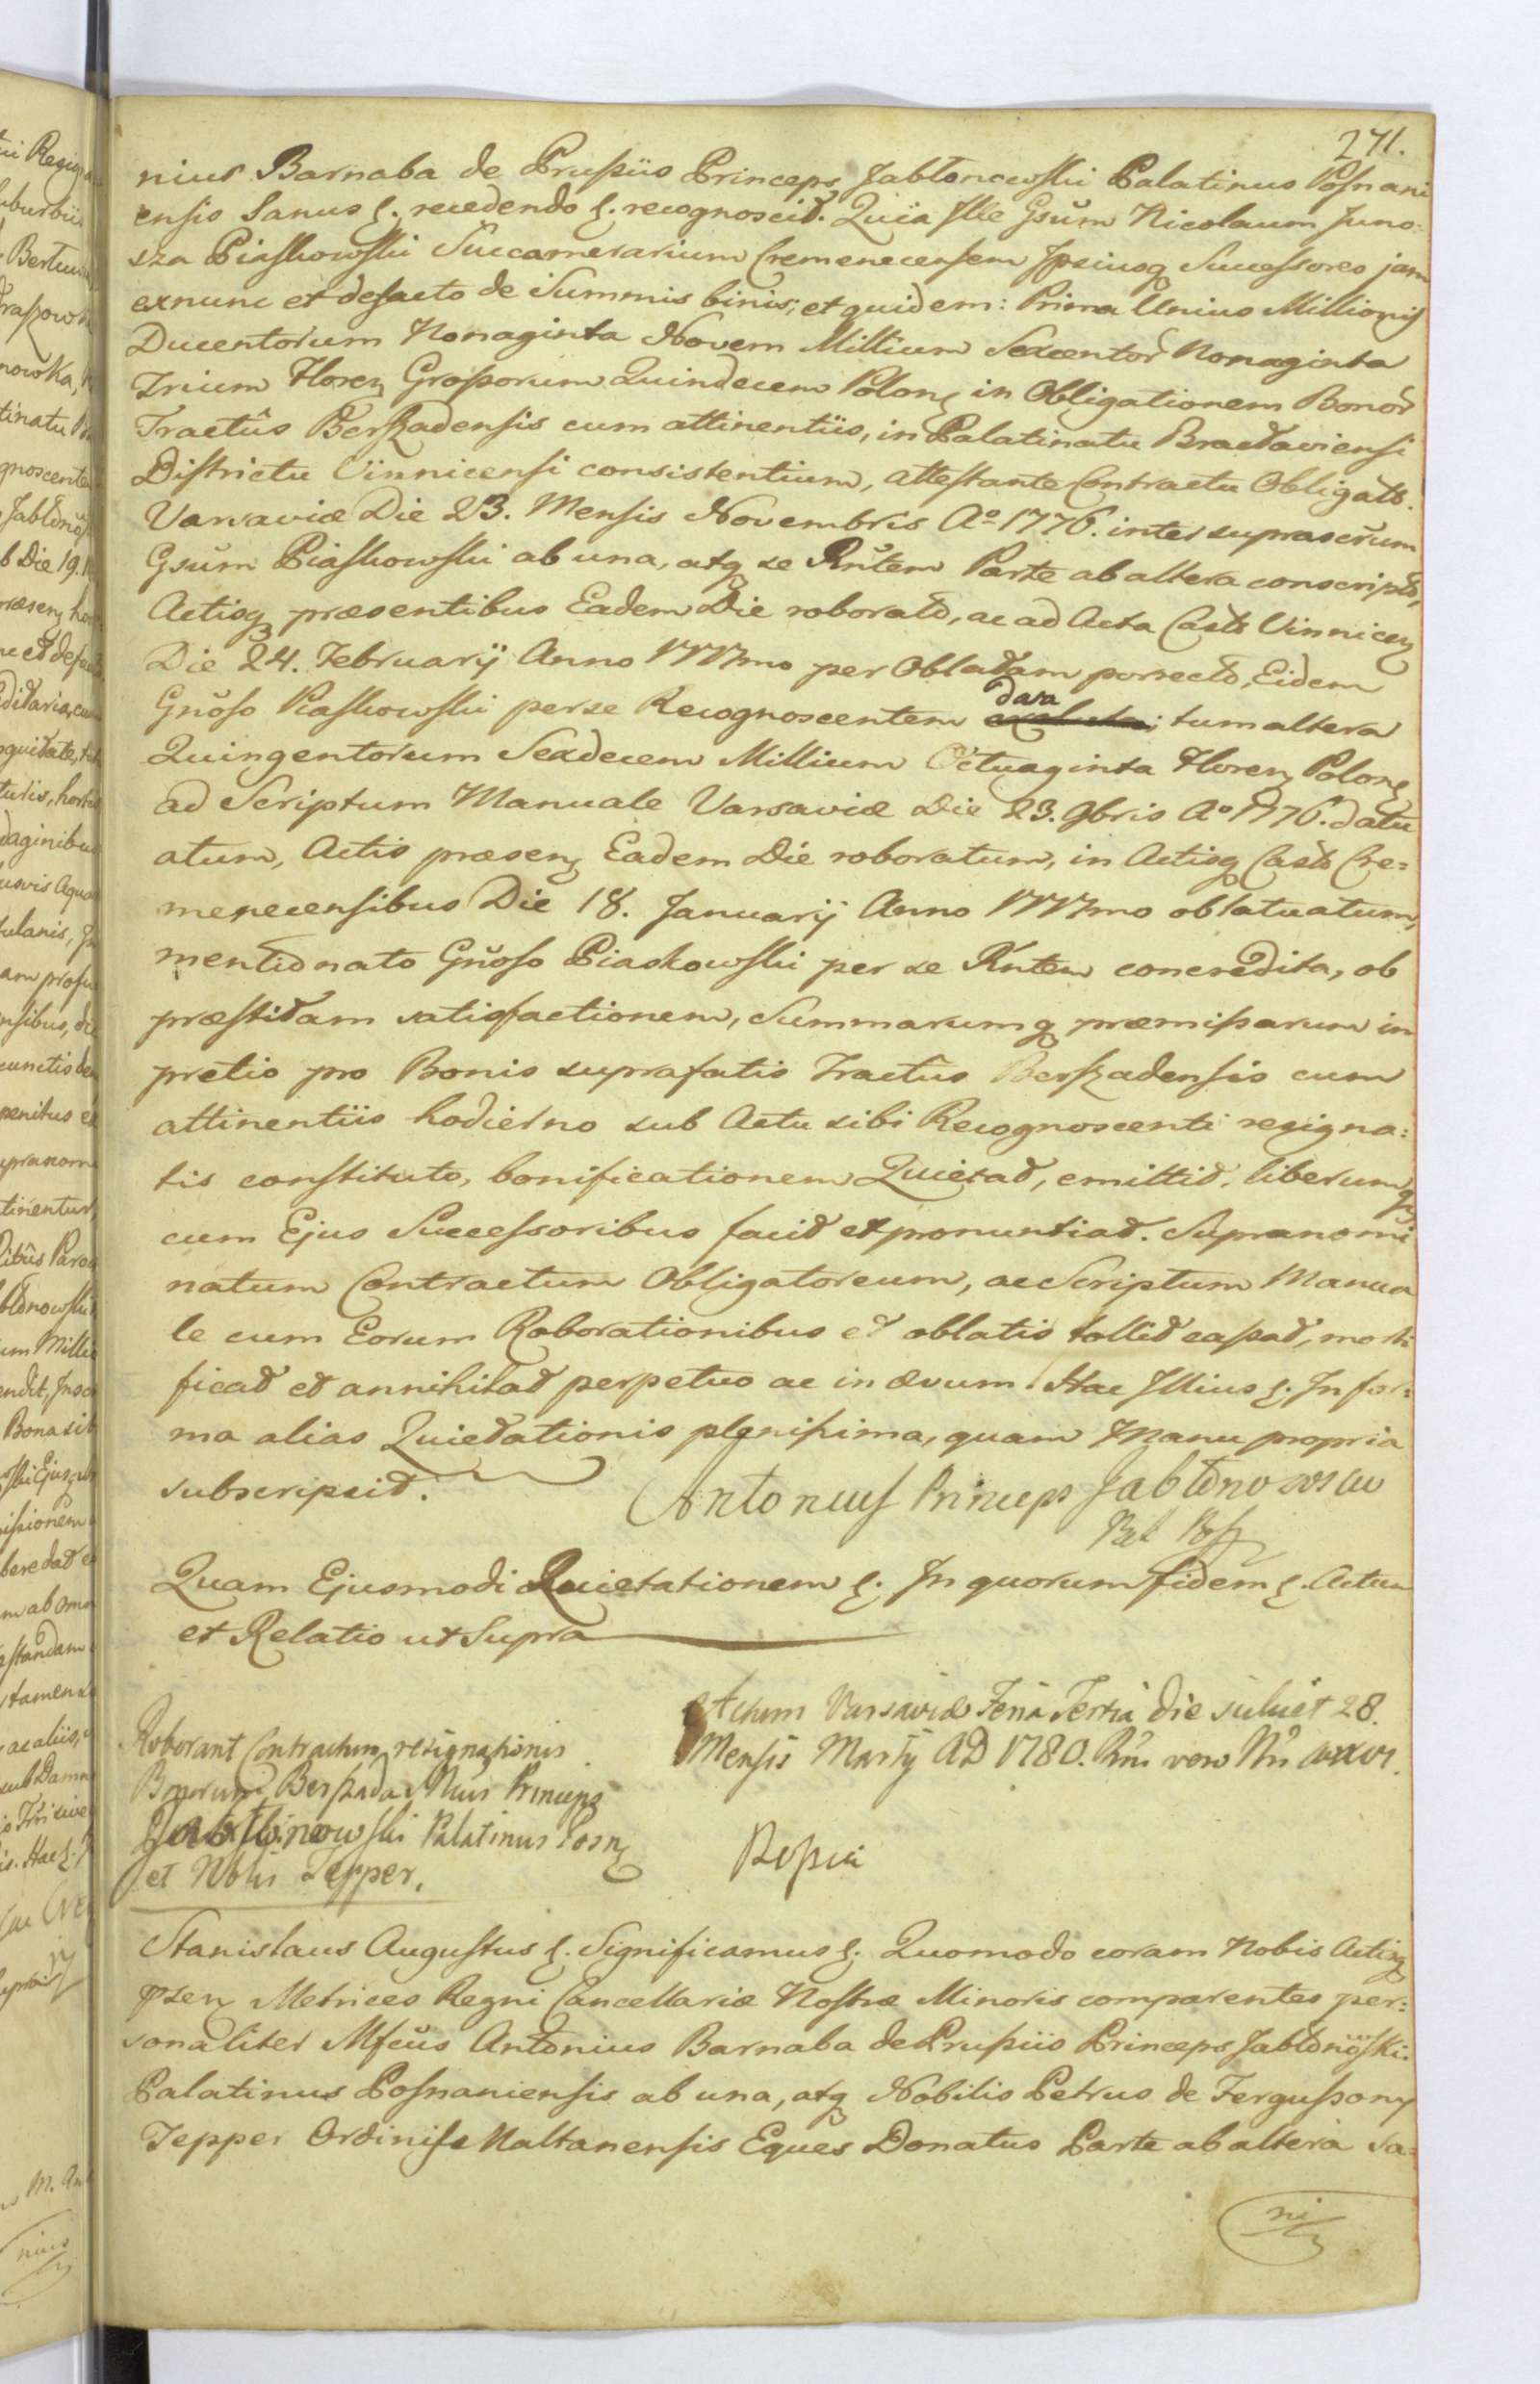 271.
nius Barnaba de Prussiis Princeps Jabłonowski Palatinus Posnani
ensis Sanus &. recedendo &. recognoscit. Quia Ille Gsum Nicolaum Juno:
sza Piaskowski Succamerarium Cremenecensem Ipsiusq Successores jam
exnunc et defacto de Summis binis; et quidem: Prima Unius Millionis
Ducentorum Nonaginta Novem Millium Sexcentor Nonaginta
Trium Floren Grossorum Quindecem Polon in Obligationem Bonor
Tractûs Berszadensis cum attinentiis, in Palatinatu Bracłaviensi
Districtu Vinnicensi consistentium, attestante Contractu Obligato.
Varsaviæ Die 23. Mensis Novembris Ao 1776. inter suprascrum
Gsum Piaskowski ab una, atq se Rntem Parte ab altera conscripto,
Actisq præsentibus Eadem Die roborato, ac ad Acta Castr Vinnicen
Die 24. Februarij Anno 1777mo per Oblatam porrecto, Eidem
Gnoso Piaskowski per se Recognoscentem data; tum altera
Quingentorum Sexdecem Millium Octuaginta Floren Polon
ad Scriptum Manuale Varsaviæ Die 23. 9bris Ao 1776. datu
atum, Actis præsen Eadem Die roboratum, in Actisq Castr Cre=
menecensibus Die 18. Januarij Anno 1777mo oblatuatum,
mentionato Gnoso Piaskowski per se Rntem concredita, ob
præstitam satisfactionem, Summarumq præmissarum in
pretio pro Bonis suprafatis Tractûs Berszadensis cum
attinentiis hodierno sub Actu sibi Recognoscenti resigna:
tis constituto, bonificationem Quietat, emittit, liberumq
cum Ejus Successoribus facit et pronuntiat. Supranomi
natum Contractum Obligatorium, ac Scriptum Manua
le cum Eorum Roborationibus et oblatis tollit cassat, morti
ficat et annihilat perpetuo ac in ævum. Hac Illius &. In for:
ma alias Quietationis plenissima, quam Manu propria
subscripsit.
Antonius Princeps Jabłonowski
Quam Ejusmodi Quietationem &. In quorum fidem &. Actum
et Relatio ut Supra
Actum Varsaviæ Feria Tertia die scilicet 28.
Mensis Martij AD 1780.
Roborant Contractum resignationis
Bonorum Berszada Princeps
Jabłonowski Palatinus Posn
et Nblis Tepper.
Stanislaus Augustus &. Significamus &. Quomodo coram Nobis Actisq
Metrices Regni Cancellariæ Nostræ Minoris comparentes per:
sonaliter Mfcus Antonius Barnaba de Prussiis Princeps Jabłonoski.
Palatinus Posnaniensis ab una, atq Nobilis Petrus de Fergussony
Tepper Ordinis Maltanensis Eques Donatus Parte ab altera sa=
ni